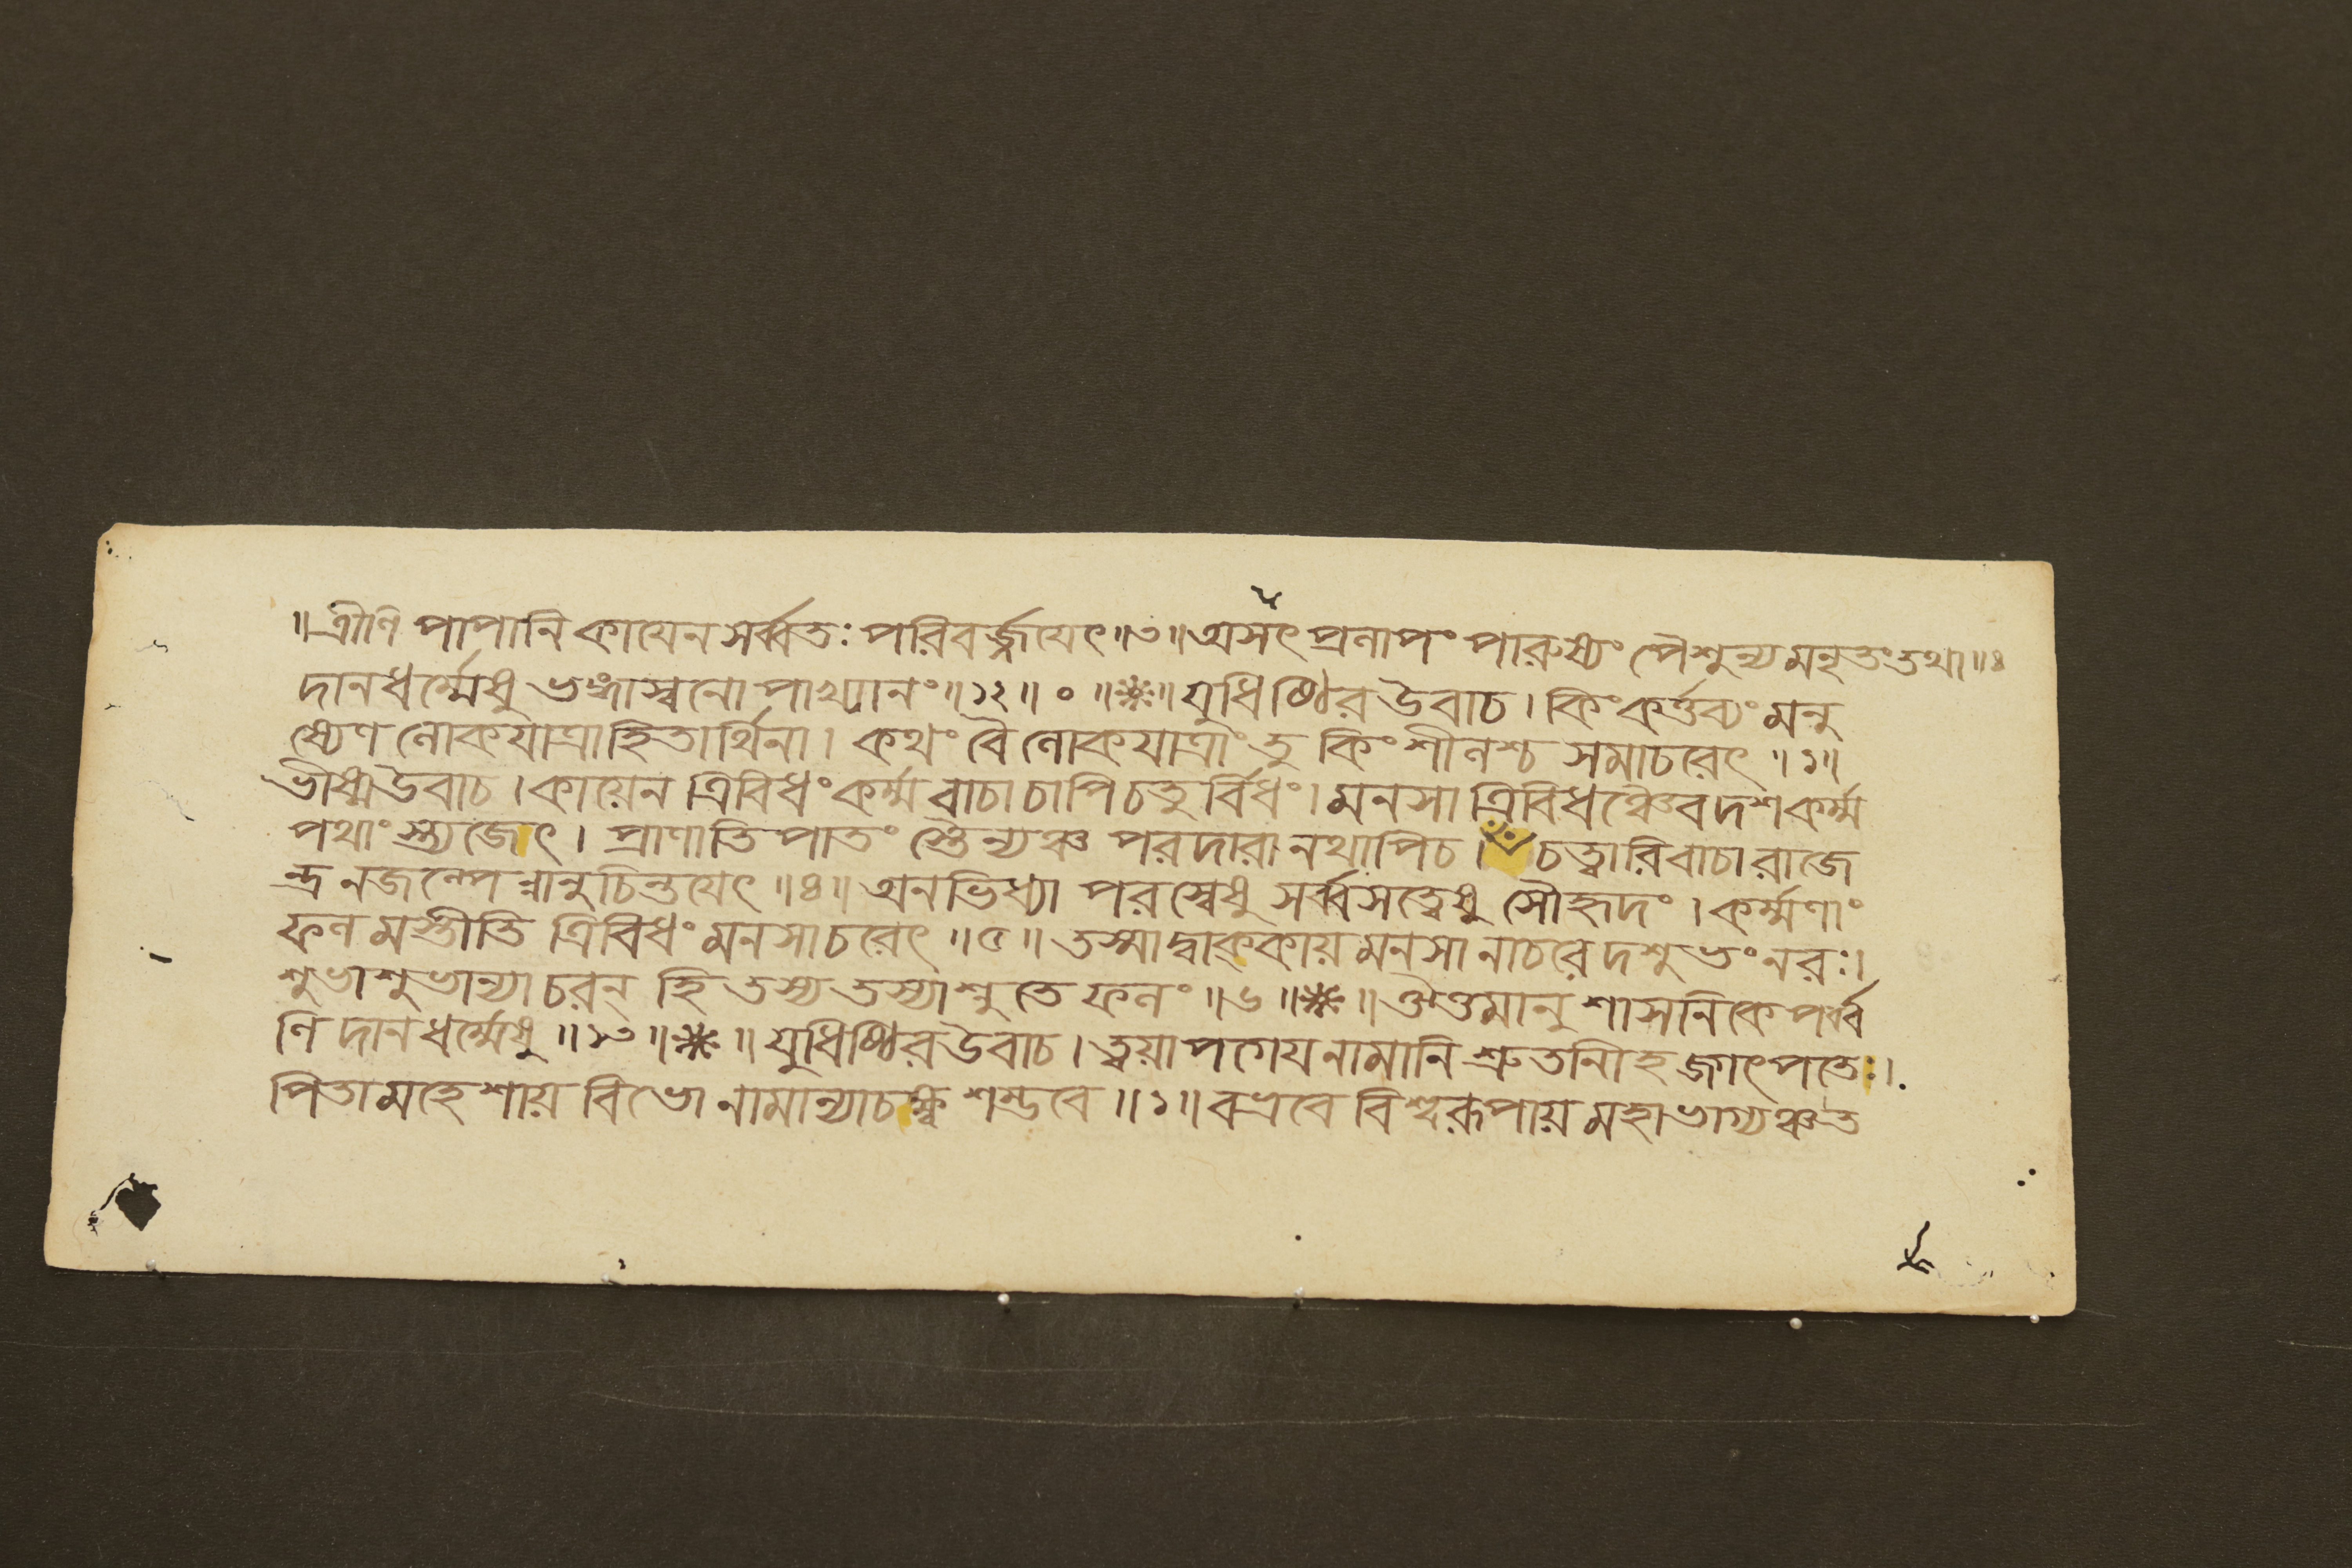 ॥ত্রীণি পাপানি কায়েন সর্ব্বতঃ পরিবর্জ্জয়েৎ॥৩॥অসৎ প্রলাপং পারুষ্যং পৈশুন্যমনৃতংতথা॥৪
দানধর্ম্মেষু ভঙ্গাস্বনোপাখ্যানং॥১২॥০॥❋॥যুধিষ্ঠির উবাচ। কিংকর্ত্তব্যং মনু
ষ্যেণ লোকযাত্রাহিতার্থিনা। কথং বৈ লোকযাত্রাং তু কিংশীলশ্চ সমাচরেৎ॥১॥
ভীষ্মউবাচ। কায়েন ত্রিবিধং কর্ম্ম বাচা চাপি চতুর্বিধং। মনসা ত্রিবিধঞ্চৈব দশকর্ম্ম
পথাংস্ত্যজেৎ। প্রাণাতিপাতং স্তৈন্যঞ্চ পরদারানথাপিচ। চত্বারি বাচা রাজে
ন্দ্র নজল্পেন্নানুচিন্তয়েৎ॥৪॥অনভিধ্যা পরস্বেষু সর্ব্বসত্ত্বেষু সৌহৃদং। কর্ম্মণাং
ফলমস্তীতি ত্রিবিধং মনসাচরেৎ॥৫॥তস্মাদ্বাক্কায়মনসা নাচরেদশুভং নরঃ।
শুভাশুভান্যাচরন্ হি তস্য তস্যাশ্নুতে ফলং॥৬॥❋॥ঔত্তমানুশাসনিকে পর্ব্ব
ণি দানধর্ম্মেষু॥১৩॥❋॥যুধিষ্ঠিরউবাচ। ত্বয়াপগেয়নামানি শ্রুতানিহ জগৎপতেঃ।
পিতামহেশায় বিভো নামান্যাচক্ষ্ব শম্ভবে॥১॥বভ্রবে বিশ্বরূপায় মহাভাগ্যঞ্চত